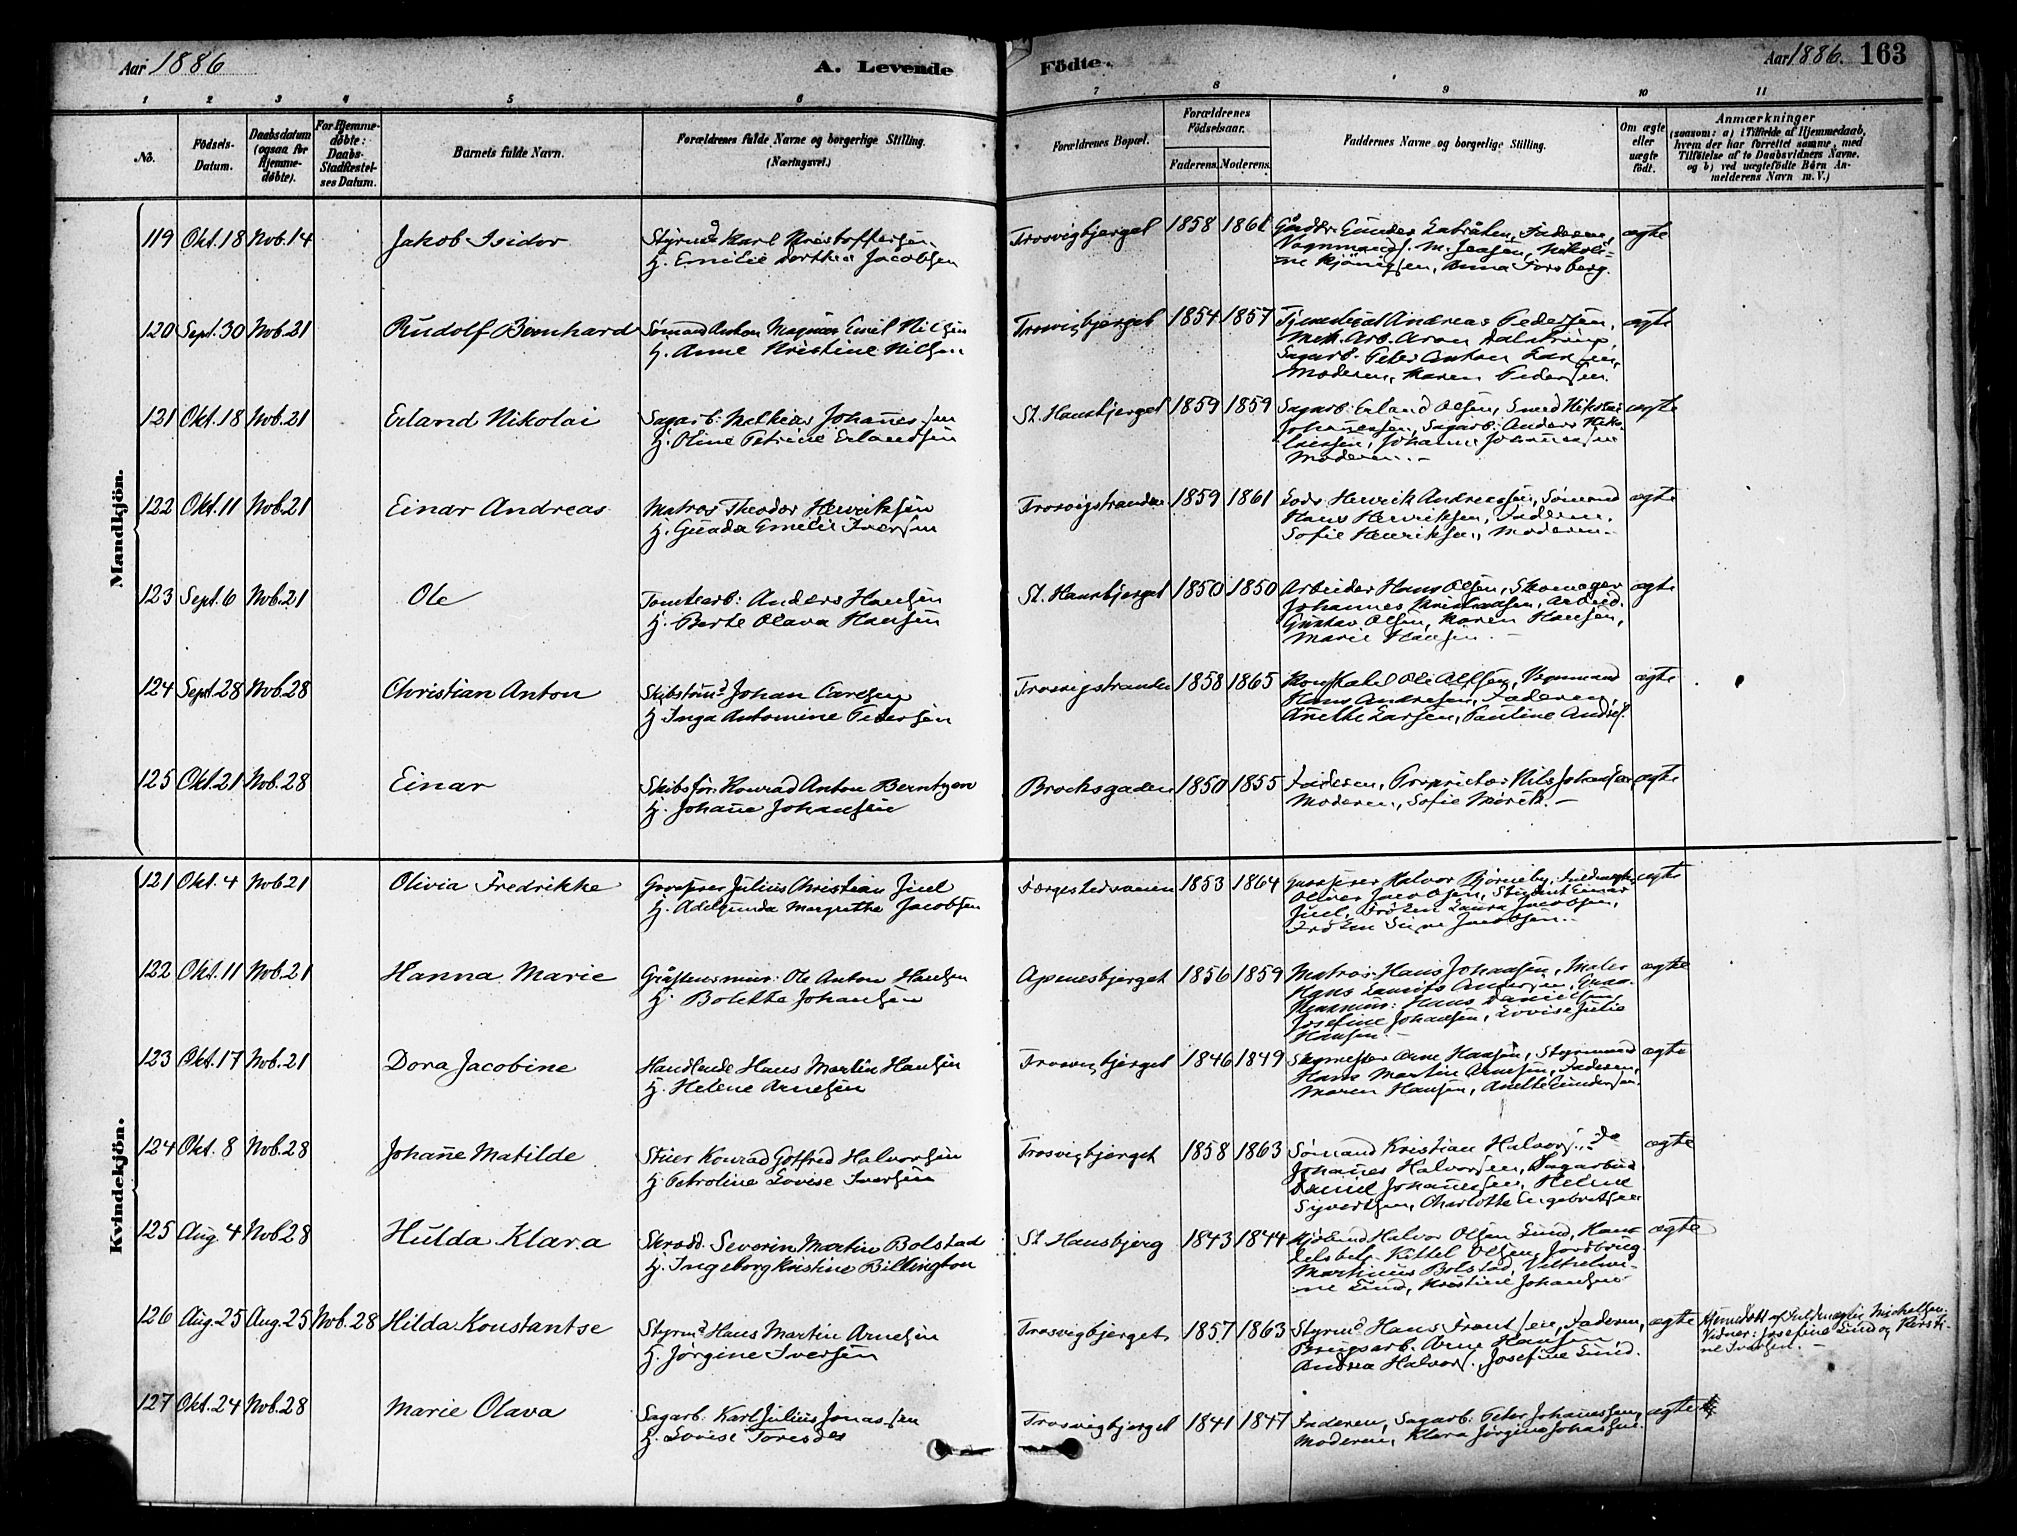 Aar 1886
A. Levende Födte.
Aar 1886. 163
1 2 3 4 5 6 7 8 9 10 11
No.
Födsels-Datum.
Daabsdatum (ogsaa for Hjemme-döbte).
For Hjemme-döbte: Daabs-Stadfæstel-ses Datum.
Barnets fulde Navn.
Forældrenes fulde Navne og borgerlige Stilling. (Næringsvei.)
Forældrenes Bopæl.
Forældrenes Födselsaar.
Faderens. Moderens.
Faddernes Navne og borgerlige Stilling.
Om ægte eller uægte födt.
Anmærkninger (saasom: a) i Tilfælde af Hjemmedaab, hvem der har forrettet samme, med Tilföielse af to Daabsvidners Navne. og b) ved uægtefödte Börn An-melderens Navn m. V.)
Mandkjön.
119 Okt. 18 Nob. 14 Jakob Isidor
Styrmd Karl Kristoffersen
Hj. Emilie Dorthea Jacobsen
Trosvigbjerget 1858 1861
Faderen,
Vognmand M. Jensen, Nikoli-
ne Anna Forsberg.
ægte
120 Sept. 30 Nob. 21 Rudolf Bernhard
Sömand Anton Magnus Emil Nilsen
Hj. Anne Kristine Nilsen
Trosvigbjerget 1854 1857
Andreas Pedersen,
Mek. Arb. Aron
Sagarb. Peter Anton Larsen,
Moderen, Maren Pedersen.
ægte
121 Okt. 18 Nob. 21 Erland Nikolai
Sagarb: Melkior Johanessen
Hj. Oline Petrine Erlandsen
St. Hansbjerget 1859 1859
Sagarb. Erland Olsen, Smed Nikolai
Johanessen, Sagarb. Anders Niko-
laisen, Johanne Johannessen
Moderen. -
ægte
122 Okt. 11 Nob. 21 Einar Andreas
Matros Theodor Henriksen
Hj. Gunda Emelie Iversen
Trosvigstranden 1859 1861
Lods Henrik Andreassen, Sömand
Hans Henriksen, Faderen,
Sofie Henriksen, Moderen. -
ægte
123 Sept. 6 Nob. 21 Ole
Tomtearb: Anders Hansen
Hj. Berte Olava Hansen
St. Hansbjerget 1850 1850
Arbeider Hans Olsen, Skomager
Johannes Kristiansen, Arbeid.
Gustav Olsen, Maren Hansen,
Marie Hansen. -
ægte
124 Sept. 28 Nob. 28 Christian Anton
Skibstömd Johan Carlsen
Hj. Inga Antomine Pedersen
Trosvigstranden 1858 1865
Konstabel Ole Vognmand
Hans Andresen, Faderen,
Anethe Larsen, Pauline Andres.
ægte
125 Okt. 21 Nob. 28 Einar
Skibsför. Konrad Anton Berntzen
Hj. Johane Johansen
Brocksgaden 1850 1855
Faderen, Proprietær Nils Johansen
Moderen, Sofie -
ægte
Kvindekjön.
121 Okt. 4 Nob 21 Olivia Fredrikke
Grosserer Julius Christian Juel
Hj. Adelgunda Margrethe Jacobsen
Færgestedsveien 1853 1864
Grosserer Halvor Bjørneby,
Oliver Jacobsen, Student Einar
Juel, Fröken Laura Jacobsen,
Fröken Signe Jacobsen. -
ægte
122 Okt. 11 Nob. 21 Hanna Marie
Gråstensmur: Ole Anton Hansen
Hj. Bolette Johansen
Apenesbjerget 1856 1859
Matros Hans Johansen, Maler
Hans Laurits Andersen, Graa-
stensmur: Hans Danielsen,
Josefine Johansen, Lovise Julie
Hansen. -
ægte
123 Okt. 17 Nob. 21 Dora Jacobine
Handlende Hans Martin Hansen
Hj. Helene Arnesen
Trosvigbjerget 1846 1849
Arne Hansen, Styrmand
Hans Martin Arnesen, Faderen,
Maren Hansen, Anette Gundersen.
ægte
124 Okt. 8 Nob. 28 Johane Matilde
Stuer Konrad Gotfred Halvorsen
Hj. Petroline Lovise Iversen
Trosvigbjerget 1858 1863
Sömand Kristian Halvors., Do
Johanes Halvorsen, Sagarbeid.
Daniel Johannesen, Helene
Syvertsen, Charlotte Engebretsen
ægte
125 Aug. 4 Nob 28 Hulda Klara
Skrædd. Severin Martin Bolstad
Hj. Ingeborg Kristine Billington
St. Hansbjerg 1843 1844
Kjöbmd Halvor Olsen Lund, Han-
delsbet. Kittel Olsen, Jordbrug.
Martinus Bolstad, Vilhelmi-
ne Lund, Kristine Johansen
ægte
126 Aug. 25 Aug. 25 Nob. 28 Hilda Konstantse
Styrmd Hans Martin Arnesen
Hj. Jørgine Iversen
Trosvigbjerget 1857 1863
Styrmd Hans Frantsen, Faderen,
Brugsarb. Arne Hansen,
Andrea Halvors., Josefine Lund.
ægte
Hjemdöbt af Michelsen.
Vidner: Josefine Lund og Kirsti-
ne Iversen. -
127 Okt. 24 Nob. 28 Marie Olava
Sagarb: Karl Julius Jonassen
Hj. Lovise Toresdr
Trosvigbjerget 1841 1847
Faderen, Sagarb. Peter Johanessen,
Moderen, Klara Jørgine Johansen.
ægte